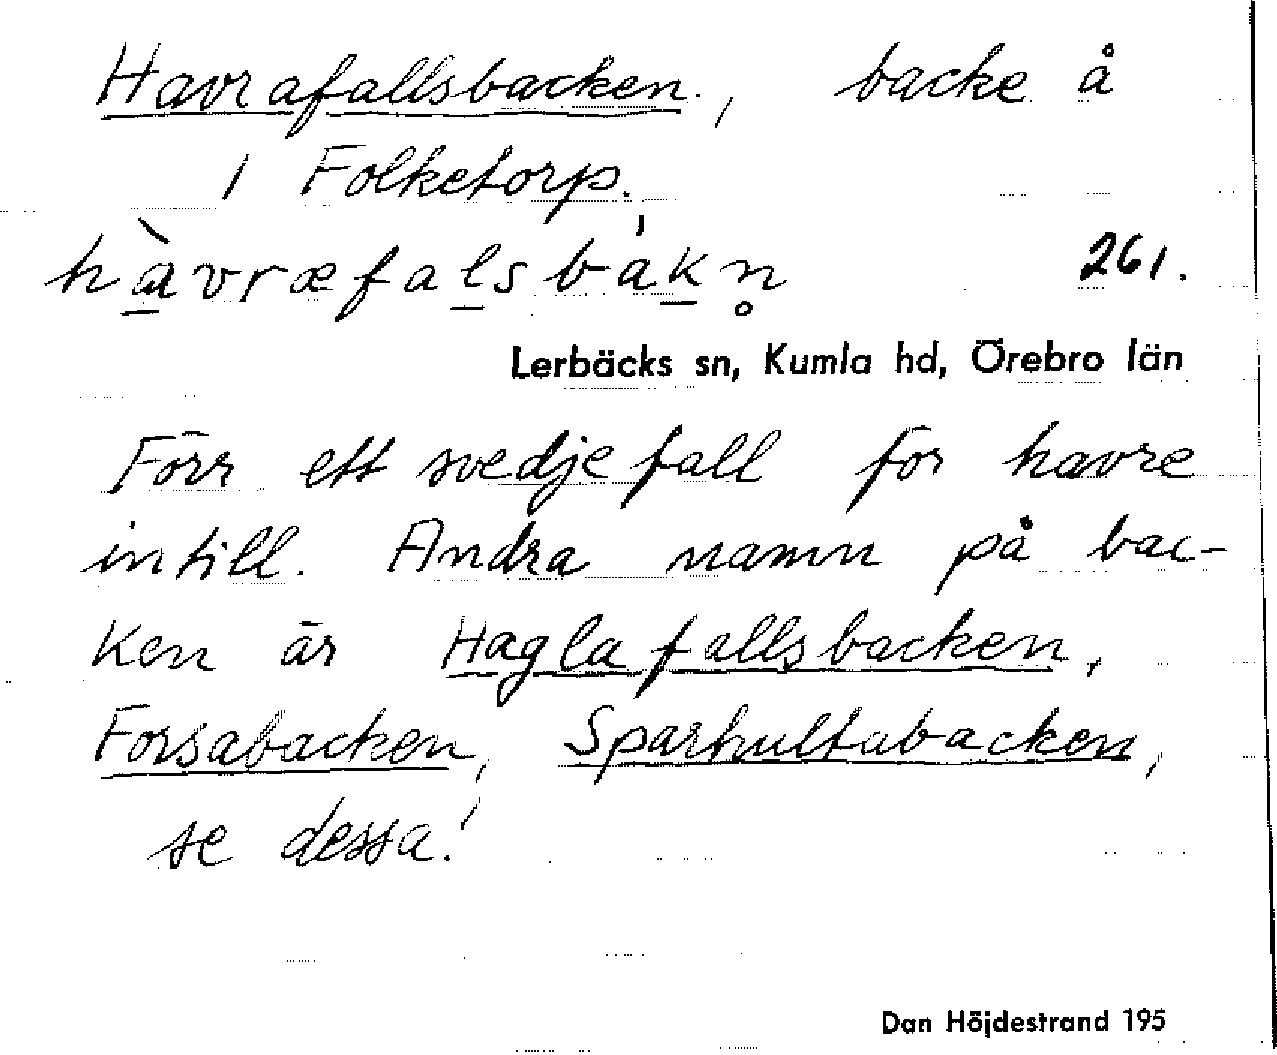 Havrafallsbacken., backe å
1 Folketorp.
hàvræfalsbákn̥ 261.
Lerbäcks sn, Kumla hd, Örebro län
Förr ett svedjefall för havre
intill. Andra namn på bac-
ken är Haglafallsbacken,
Forsabacken, Sparhultabacken,
se dessa!
Dan Höjdestrand 195